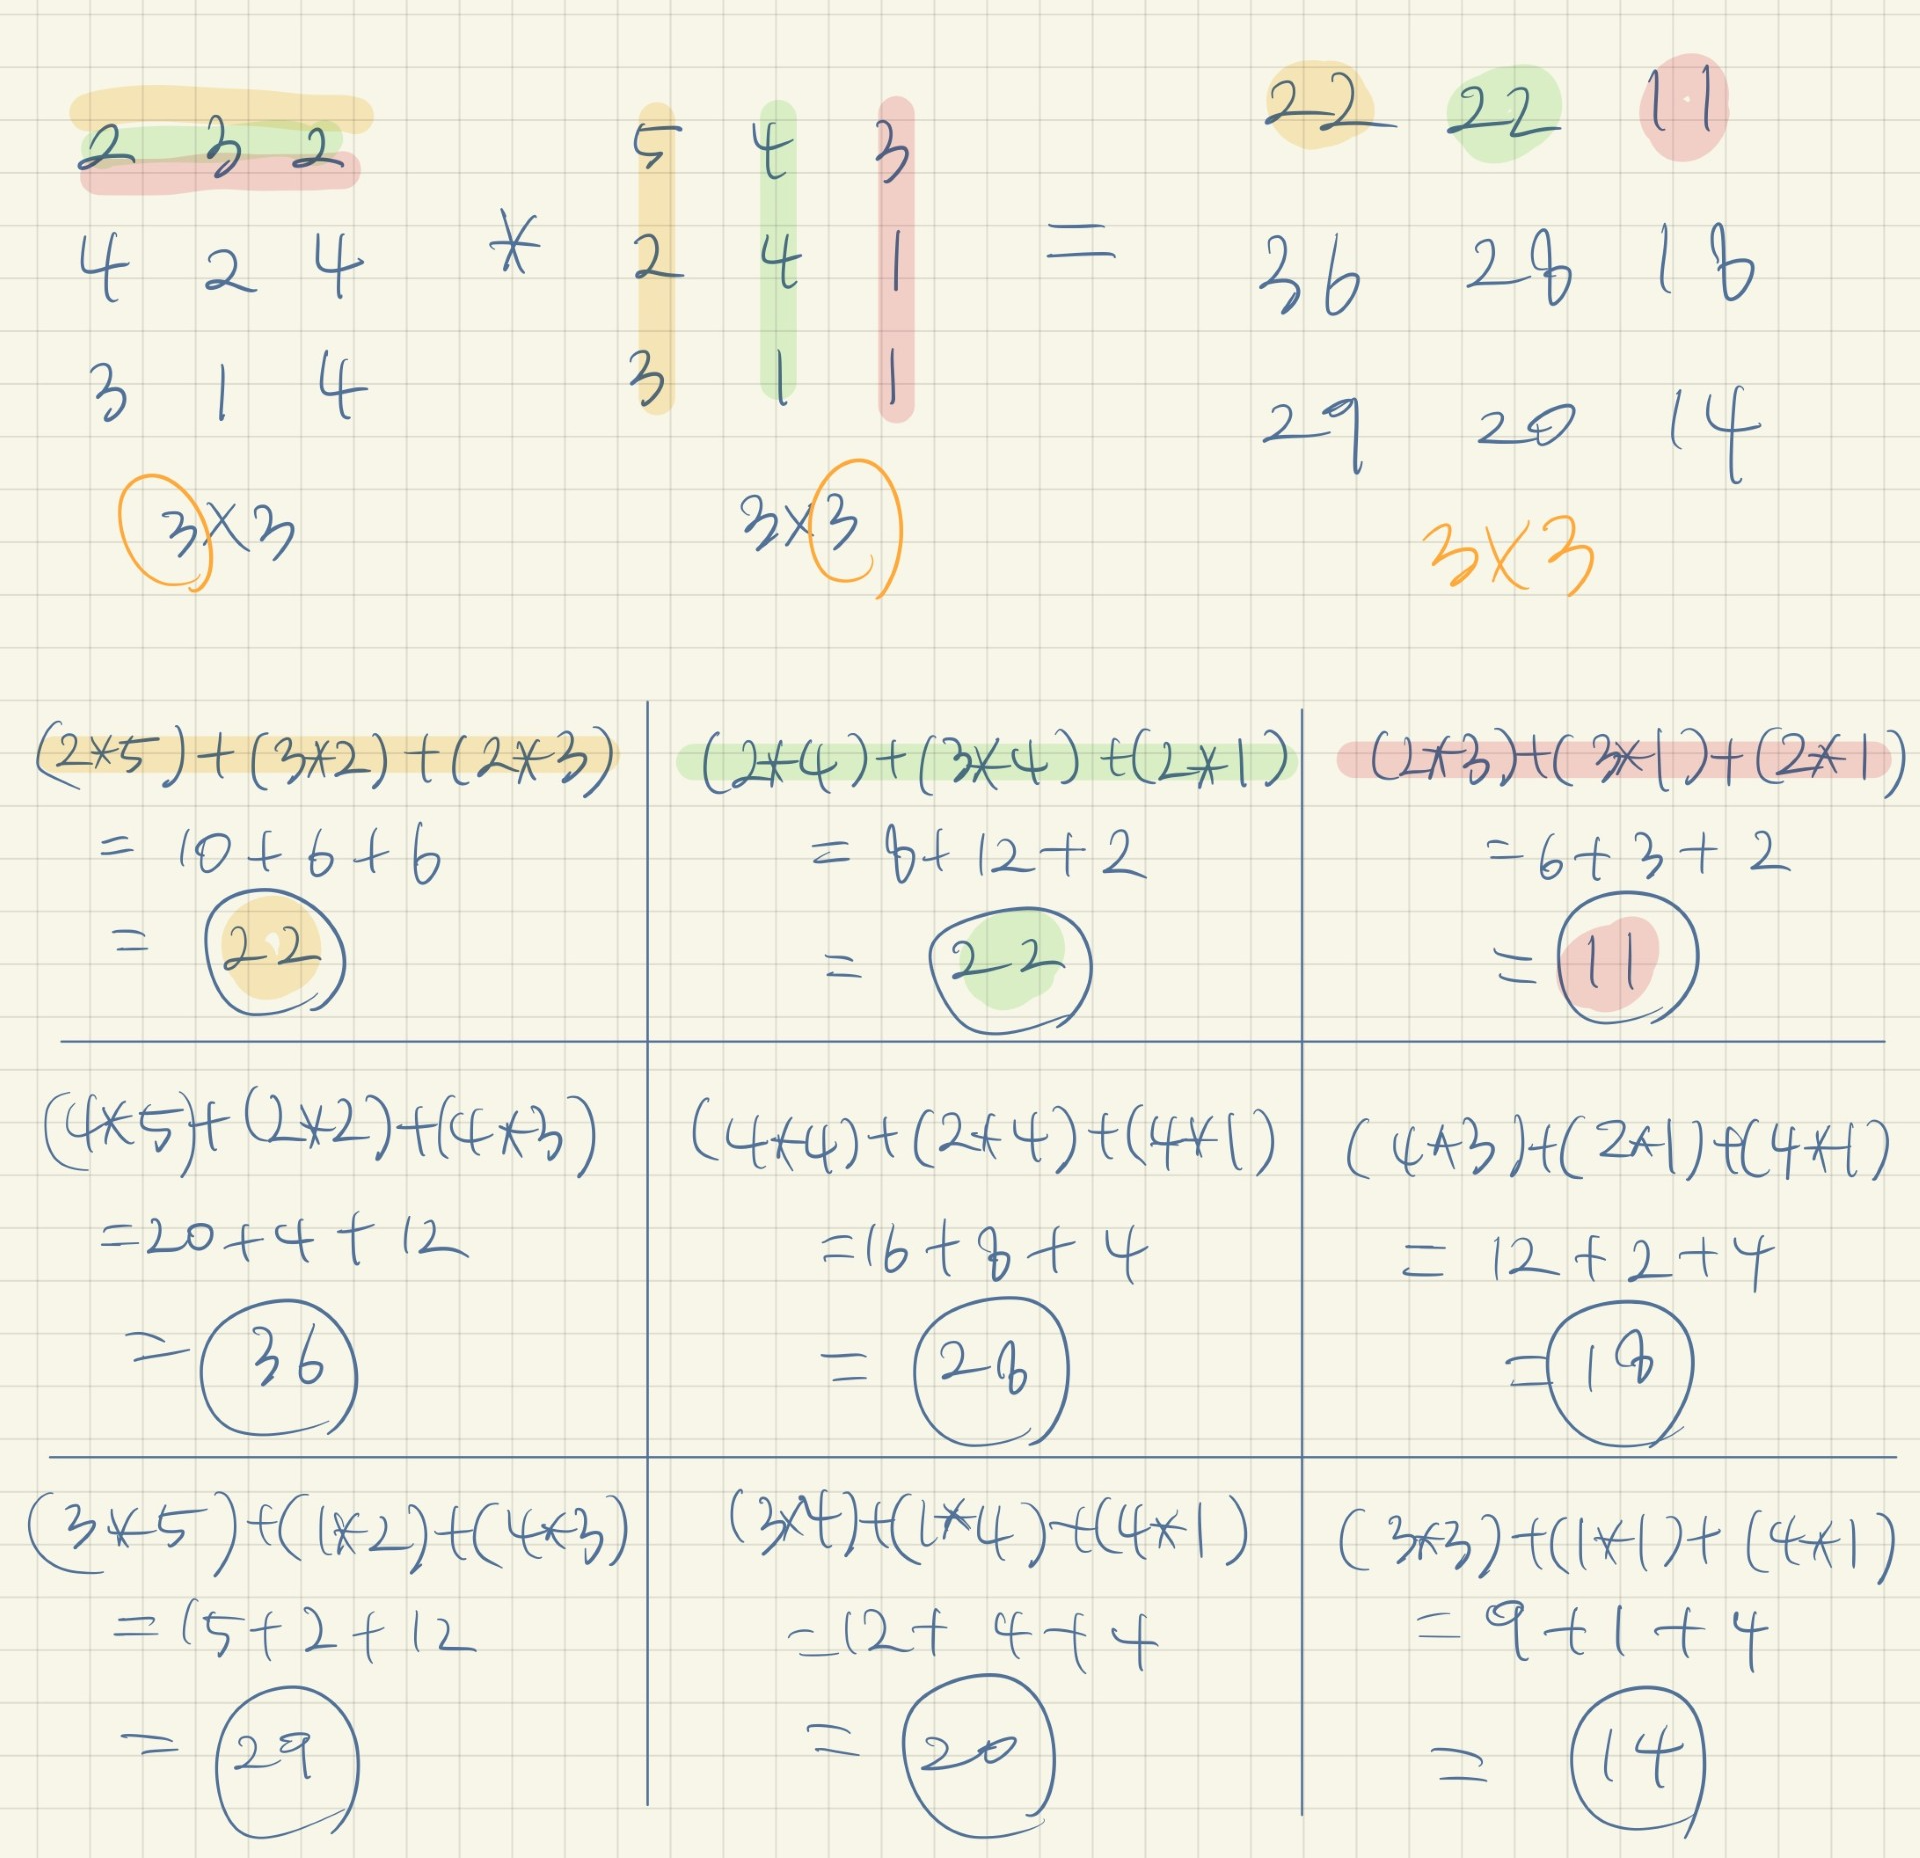 2 3 2   5 4 3   22 22 11
4 2 4 * 2 4 1 = 36 28 18
3 1 4   3 1 1   29 20 14
3x3   3x3   3x3
(2*5)+(3*2)+(2*3)
= 10+6+6
= 22
(2*4)+(3*4)+(2*1)
= 8+12+2
= 22
(2*3)+(3*1)+(2*1)
=6+3+2
= 11
(4*5)+(2*2)+(4*3)
=20+4+12
= 36
(4*4)+(2*4)+(4*1)
=16+8+4
= 28
(4*3)+(2*1)+(4*1)
= 12+2+4
= 18
(3*5)+(1*2)+(4*3)
=15+2+12
= 29
(3*4)+(1*4)+(4*1)
=12+4+4
= 20
(3*3)+(1*1)+(4*1)
=9+1+4
= 14